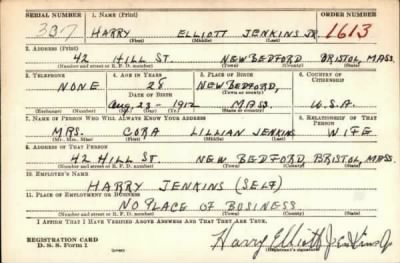 SERIAL NUMBER 1. NAME (Print) ORDER NUMBER
337 HARRY ELLIOTT JENKINS JR. 1613
(First) (Middle) (Last)
2. ADDRESS (Print)
42 HILL ST. NEW BEDFORD BRISTOL, MASS.
(Number and street or R. F. D. number) (Town) (County) (State)
3. TELEPHONE 4. AGE IN YEARS 5. PLACE OF BIRTH 6. COUNTRY OF CITIZENSHIP
NONE 28 NEW BEDFORD,
DATE OF BIRTH (Town or county)
Aug. 23 - 1912 MASS. U.S.A.
7. NAME OF PERSON WHO WILL ALWAYS KNOW YOUR ADDRESS 8. RELATIONSHIP OF THAT PERSON
MRS. CORA LILLIAN JENKINS WIFE
(Mr., Mrs., Miss) (First) (Middle) (Last)
9. ADDRESS OF THAT PERSON
42 HILL ST. NEW BEDFORD, BRISTOL, MASS.
(Number and street or R. F. D. number) (Town) (County) (State)
10. EMPLOYER'S NAME
HARRY JENKINS (SELF)
11. PLACE OF EMPLOYMENT OR BUSINESS
NO PLACE OF BUSINESS
(Number and street or R. F. D. number) (Town) (County) (State)
I AFFIRM THAT I HAVE VERIFIED ABOVE ANSWERS AND THAT THEY ARE TRUE.
REGISTRATION CARD
D. S. S. Form 1
Harry Elliott Jenkins Jr